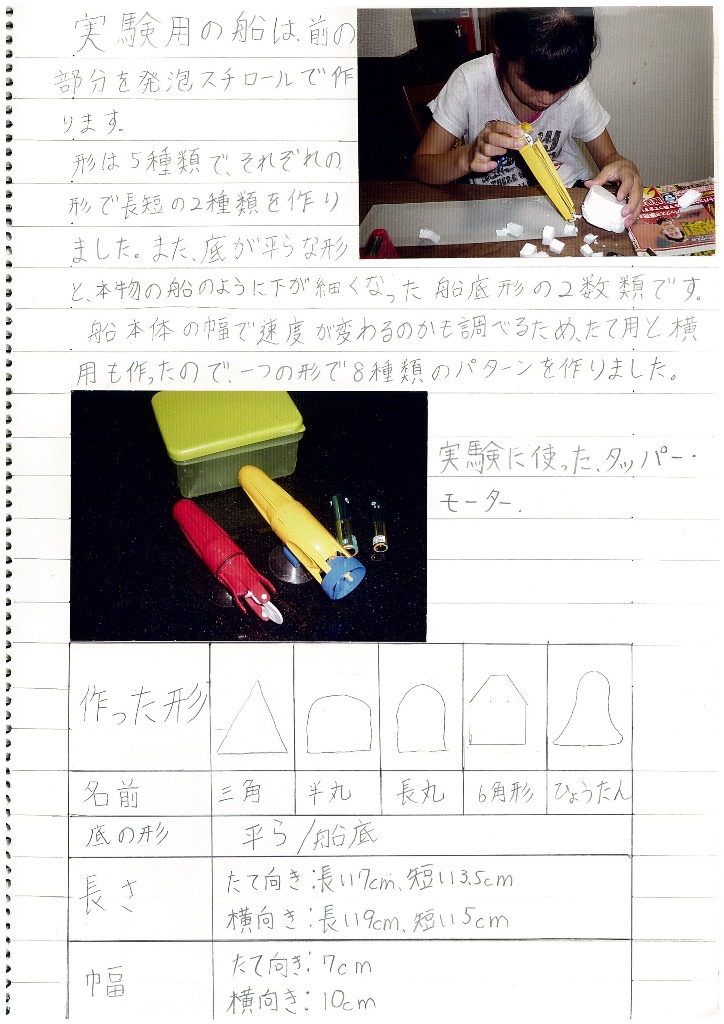 実験用の船は、前の
部分を発泡スチロールで作
ります。
形は5種類で、それぞれの
形で長短の2種類を作り
ました。また、底が平らな形
と、本物の船のように下が細くなった船底形の2数類です。
船本体の幅で速度が変わるのかも調べるため、たて用と横
用も作ったので、一つの形で8種類のパターンを作りました。
実験に使った、タッパー・
モーター.
作った形
名前 三角 半丸 長丸 6角形 ひょうたん
底の形 平ら/船底
長さ たて向き:長い7cm、短い3.5cm
横向き:長い9cm、短い5cm
幅 たて向き:7cm
横向き:10cm